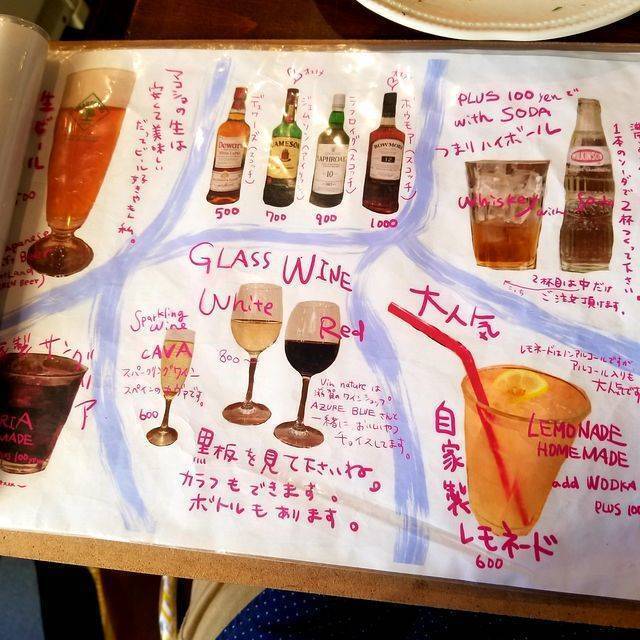 生ビール
マコシの生は
安くて美味しい
700
Japanese
BEER)
Dewar's
(スコッチ)
500
JAMESON
700
LAPHROAIG
10
ラフロイグ (スコッチ)
900
BOWMORE
12
ボウモア (スコッチ)
1000
PLUS 100 yen で
with SODA
つまりハイボール
Whiskey with Soda
WILKINSON
1本のソーダで2杯つくって下さい
2杯目は中だけ
ご注文頂けます。
GLASS WINE
White
Red
800
Sparkling
Wine
CAVA
スパークリングワイン
スペインのカヴァです。
600
Vin nature は
滋賀のワインショップ
AZURE BLUEさんと
一緒においしいやつ
チョイスしてます。
黒板を見て下さいね。
カラフもできます。
ボトルもあります。
サングリア
MADE
大人気
レモネードはノンアルコールですが
アルコール入りも
大人気です
自家製
レモネード
600
LEMONADE
HOMEMADE
add WODKA
PLUS 100